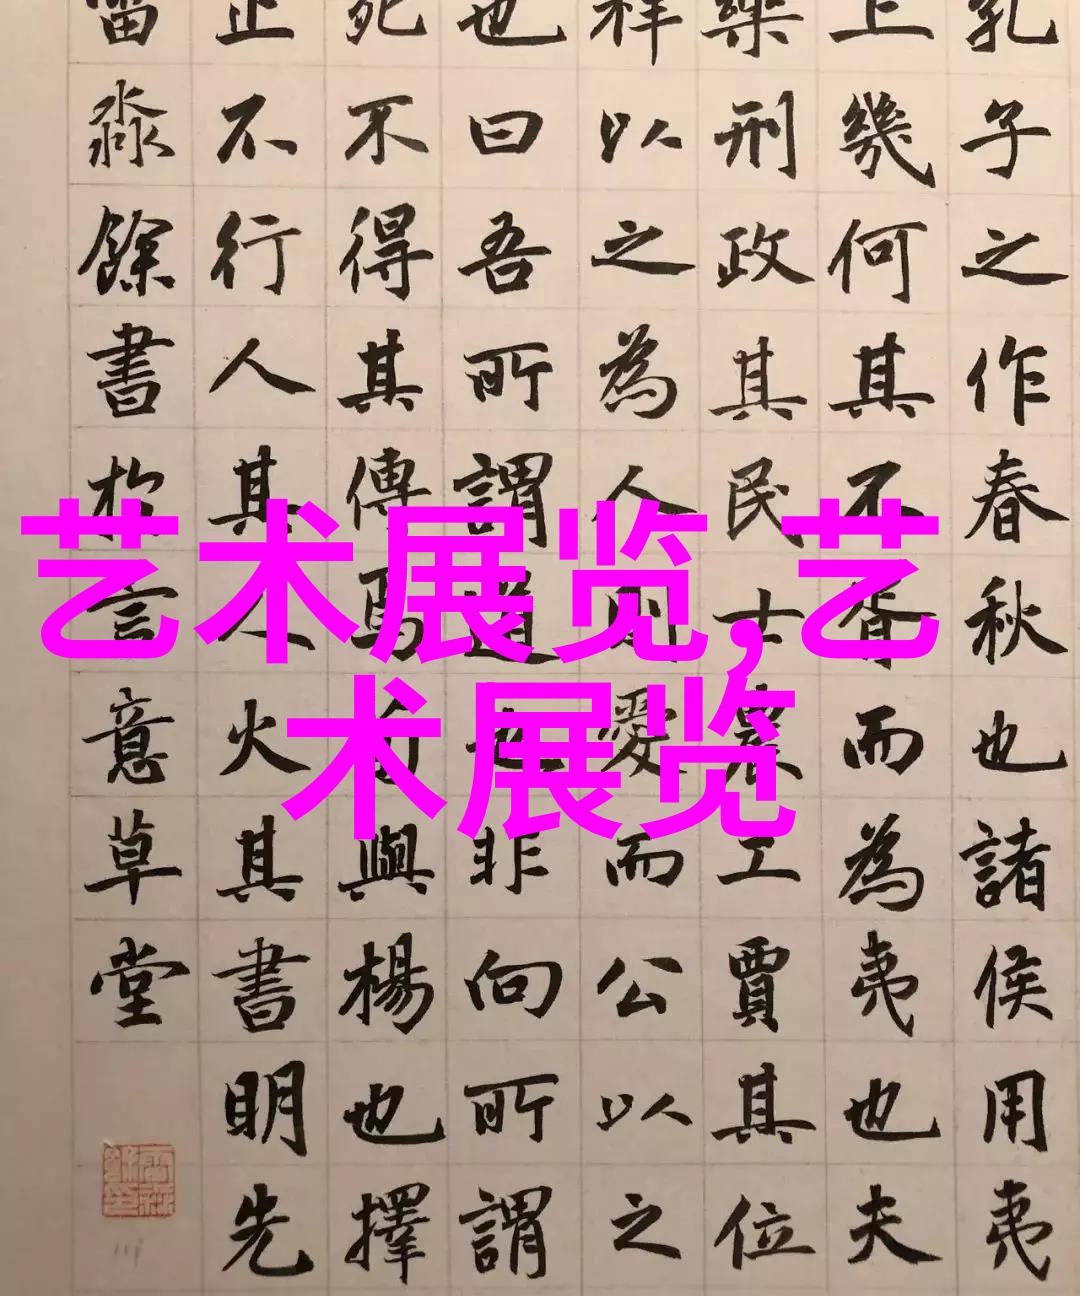 艺术展览,艺
术展览
孔子之作春秋也諸侯用夷
上幾何其不胥而為夷也夫
樂刑政其民士農工賈其位
祥以之為人則愛而公以之
也曰吾所謂道也非向所謂
死不得其傳焉荀與楊也擇
止不行人其人火其書明先
淼餘書於言意草堂